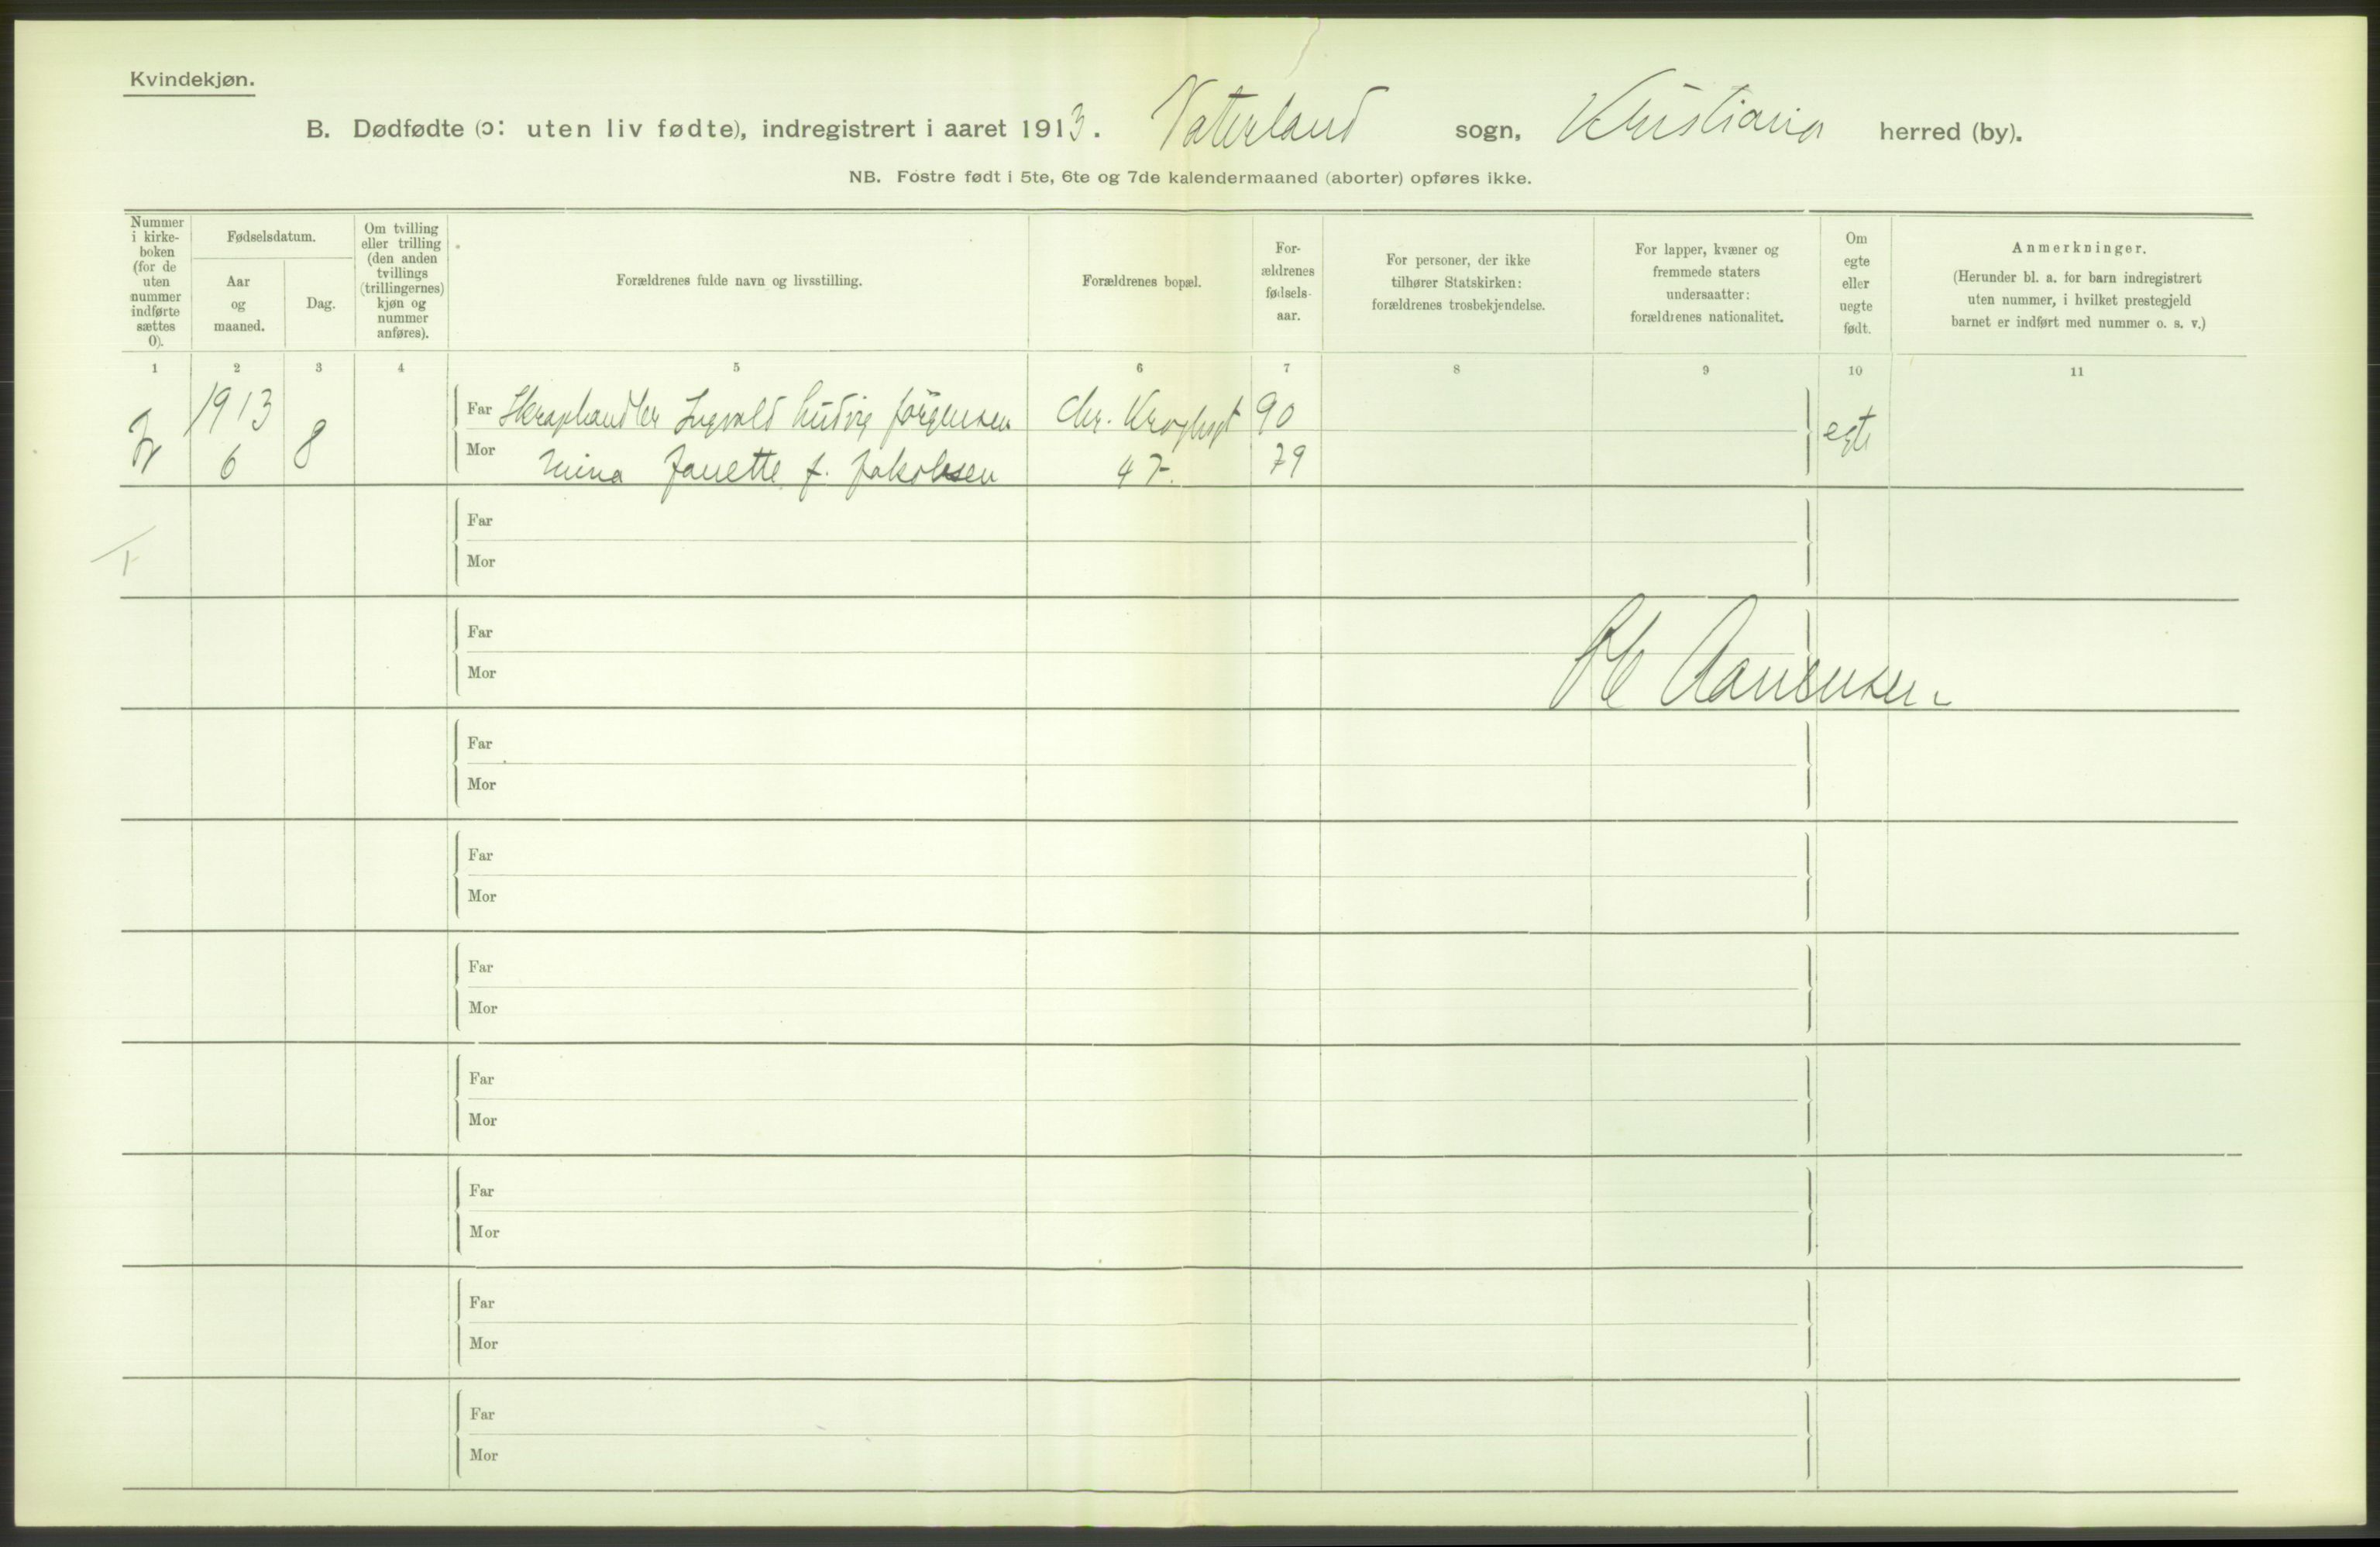 Kvindekjøn.
B. Dødfødte (ɔ: uten liv fødte), indregistrert i aaret 1913. Vaterland sogn, Kristiania herred (by).
NB. Fostre født i 5te, 6te og 7de kalendermaaned (aborter) opføres ikke.
Nummer
i kirke-
boken
(for de
uten
nummer
indførte
sættes
0).
Fødselsdatum.
Aar
og
maaned.
Dag.
Om tvilling
eller trilling
(den anden
tvillings
(trillingernes)
kjøn og
nummer
anføres).
Forældrenes fulde navn og livsstilling.
Forældrenes bopæl.
For-
ældrenes
fødsels-
aar.
For personer, der ikke
tilhører Statskirken:
forældrenes trosbekjendelse.
For lapper, kvæner og
fremmede staters
undersaatter:
forældrenes nationalitet.
Om
egte
eller
uegte
født.
Anmerkninger.
(Herunder bl. a. for barn indregistrert
uten nummer, i hvilket prestegjeld
barnet er indført med nummer o. s. v.)
1 2 3 4 5 6 7 8 9 10 11
1913
6 8
Far Skraphandler Ingvald Ludvig Jörgensen Chr. Kroghsgt 90
Mor Mina Janette f. Jakobsen 47. 79
egte
Far
Mor
Far
Mor
Far
Mor
Far
Mor
Far
Mor
Far
Mor
Far
Mor
Far
Mor
Far
Mor